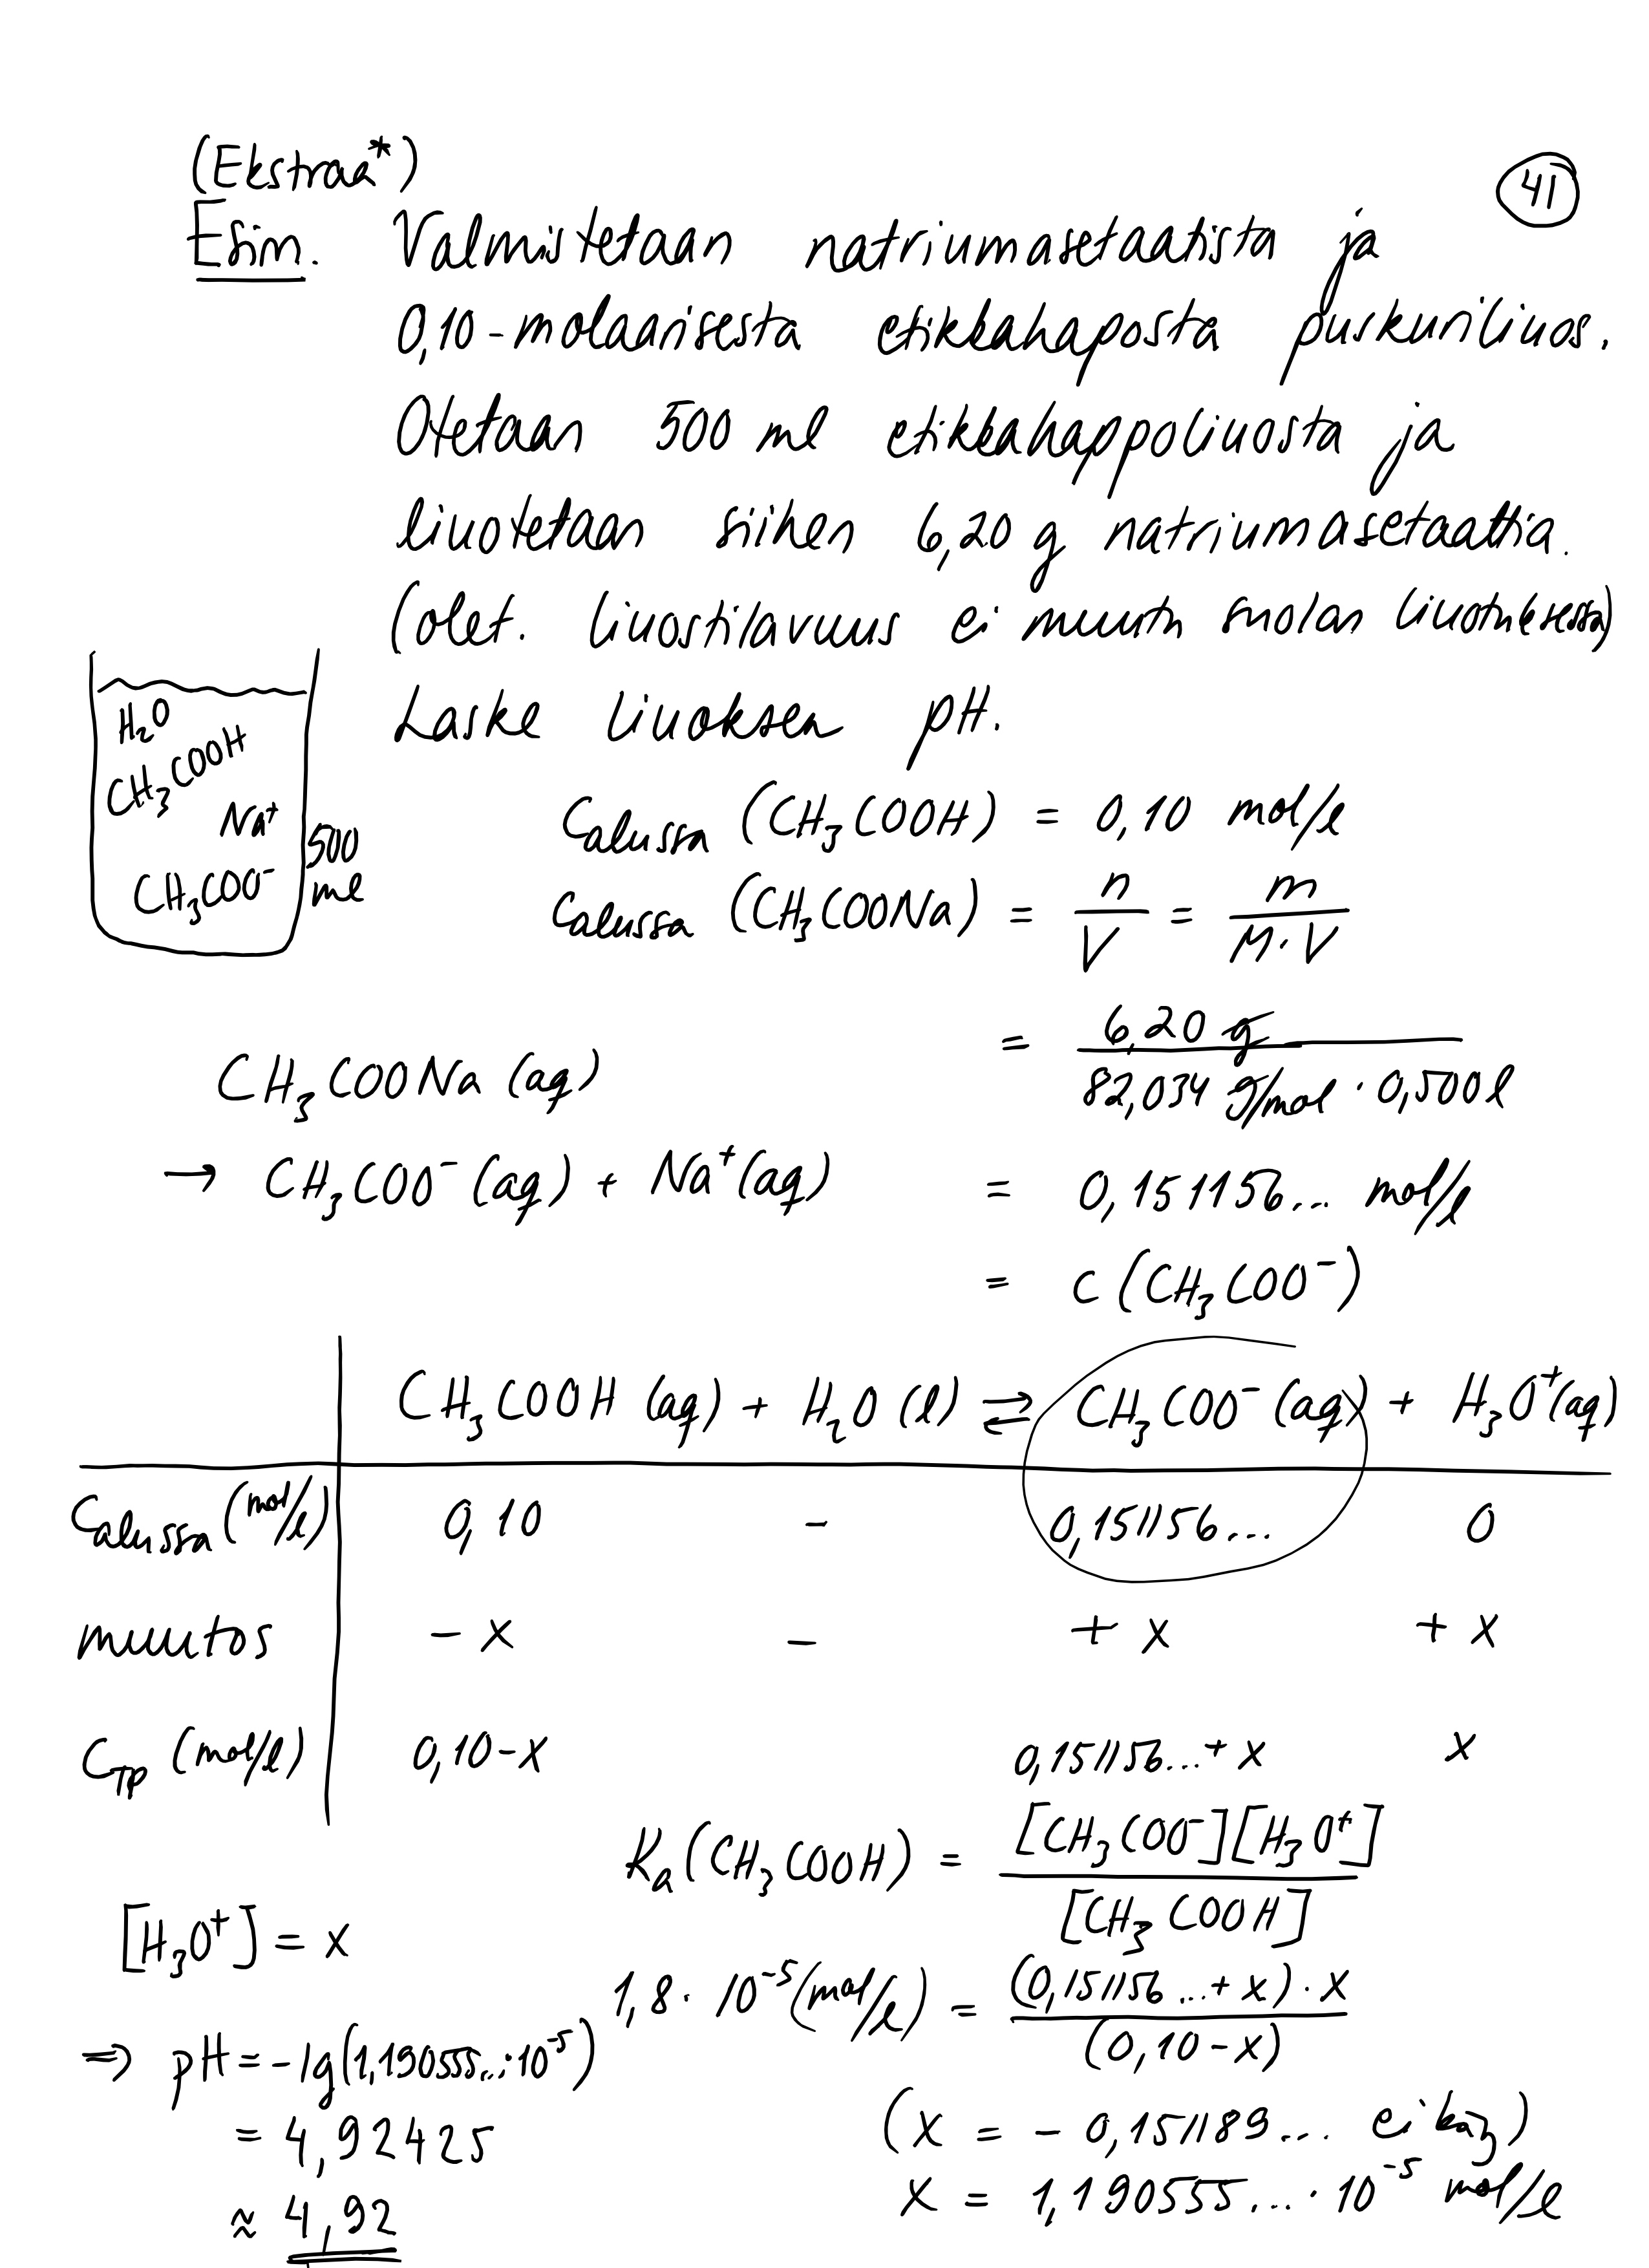 (Ekstraa*)
41
Esim. Valmistetaan natriumasetaatista ja
0,10-molaarisesta etikkahaposta puskuriliuos.
Otetaan 500 ml etikkahappoliuosta ja
liuotetaan siihen 6,20 g natriumasetaattia.
(olet. liuostilavuus ei muutu suolan liuotuksessa)
Laske liuoksen pH.
H₂O
CH₃COOH
Na⁺
CH₃COO⁻
500
ml
Calussa (CH₃COOH) = 0,10 mol/l
Calussa (CH₃COONa) = n/V = m/(M·V)
= 6,20 g / (82,034 g/mol · 0,500 l)
CH₃COONa (aq)
→ CH₃COO⁻ (aq) + Na⁺(aq) = 0,151156... mol/l
= c (CH₃COO⁻)
CH₃COOH (aq) + H₂O (l) ⇌ CH₃COO⁻ (aq) + H₃O⁺(aq)
Calussa (mol/l) 0,10 - 0,151156... 0
muutos - x - + x + x
CTP (mol/l) 0,10-x 0,151156...+ x x
Ka (CH₃COOH) = [CH₃COO⁻][H₃O⁺] / [CH₃COOH]
[H₃O⁺] = x
1,8 · 10⁻⁵ (mol/l) = (0,151156...+ x) · x / (0,10-x)
⇒ pH = -lg(1,190555...·10⁻⁵)
= 4,92425
≈ 4,92
(x = - 0,151189... ei käy)
x = 1,190555... · 10⁻⁵ mol/l